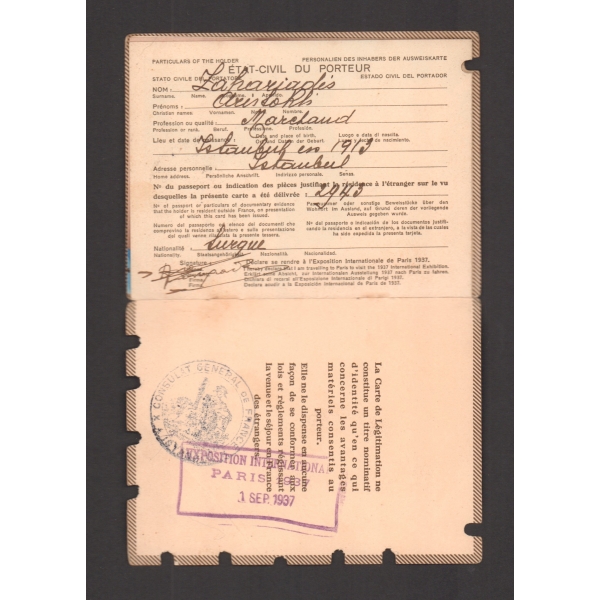 PARTICULARS OF THE HOLDER PERSONALIEN DES INHABERS DER AUSWEISKARTE
ÉTAT-CIVIL DU PORTEUR
STATO CIVILE DEL PORTATORE ESTADO CIVIL DEL PORTADOR
NOM: Zahariadis
Surname. Name. Apellido.
Prénoms:
Christian names: Vornamen. Nome. Nombre.
Profession ou qualité: Marchand
Profession or rank. Beruf. Professione. Profesión.
Date and place of birth. Luogo e data di nascita.
Lieu et date de naissance: Istanbul en 1913
Ort und Datum der Geburt. Lugar y fecha de nacimiento.
Adresse personnelle: Istanbul
Home address. Persönliche Anschrift. Indirizzo personale. Senas.
No du passeport ou indication des pièces justifiant la résidence à l'étranger sur le vu
desquelles la présente carte a été délivrée: 2943
No of passport or particulars of documentary evidence
that the holder is resident outside France, on presentation
of which this card has been issued.
Passnummer oder sonstige Beweisstücke über den
Wohnort im Ausland, auf Grund deren der vorliegende
Ausweis gegeben wurde.
Numero del passaporto od elenco dei documenti che
comprovino la residenza all'estero e sulla presentazione
dei quali venne rilasciata la presente tessera.
No del pasaporte o indicación de los documentos justificando
la residencia en el extranjero, a la vista de las cuales
ha sido expedida la presente tarjeta.
Nationalité: turque
Nationality. Staatsangehörigkeit. Nazionalità. Nacionalidad.
Signature:
Déclare se rendre à l'Exposition Internationale de Paris 1937.
I hereby declare that I am travelling to Paris to visit the 1937 International Exhibition.
Erklärt seine Absicht, zur Internationalen Ausstellung 1937 nach Paris zu fahren.
Dichiara di recarsi all'Esposizione Internazionale di Parigi 1937.
Declara acudir a la Exposición Internacional de Paris de 1937.
Firma
La Carte de Légitimation ne
constitue un titre nominatif
d'identité qu'en ce qui
concerne les avantages
matériels consentis au
porteur.
Elle ne le dispense en aucune
façon de se conformer aux
lois et règlements régissant
la venue et le séjour en France
des étrangers.
CONSULAT GÉNÉRAL DE FRANCE
EXPOSITION INTERNATIONALE
PARIS 1937
1 SEP. 1937